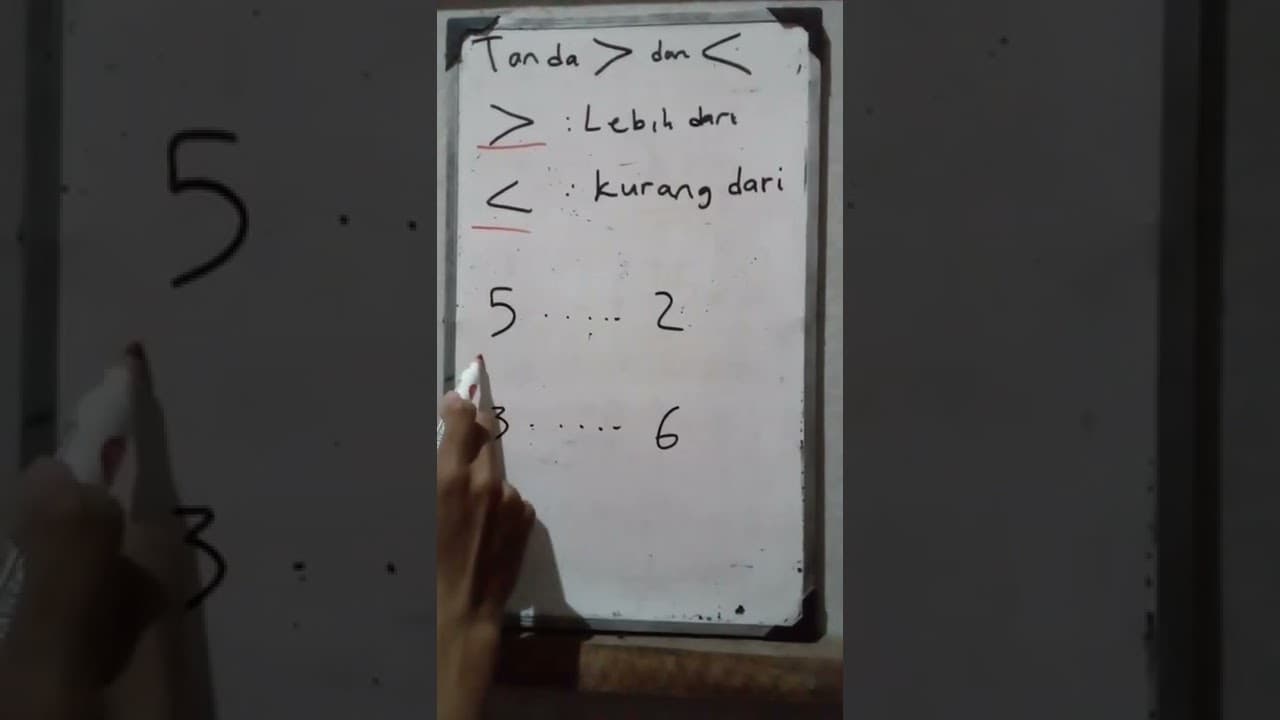 Tanda > dan <
> : Lebih dari
< : kurang dari
5 ...... 2
3 ...... 6